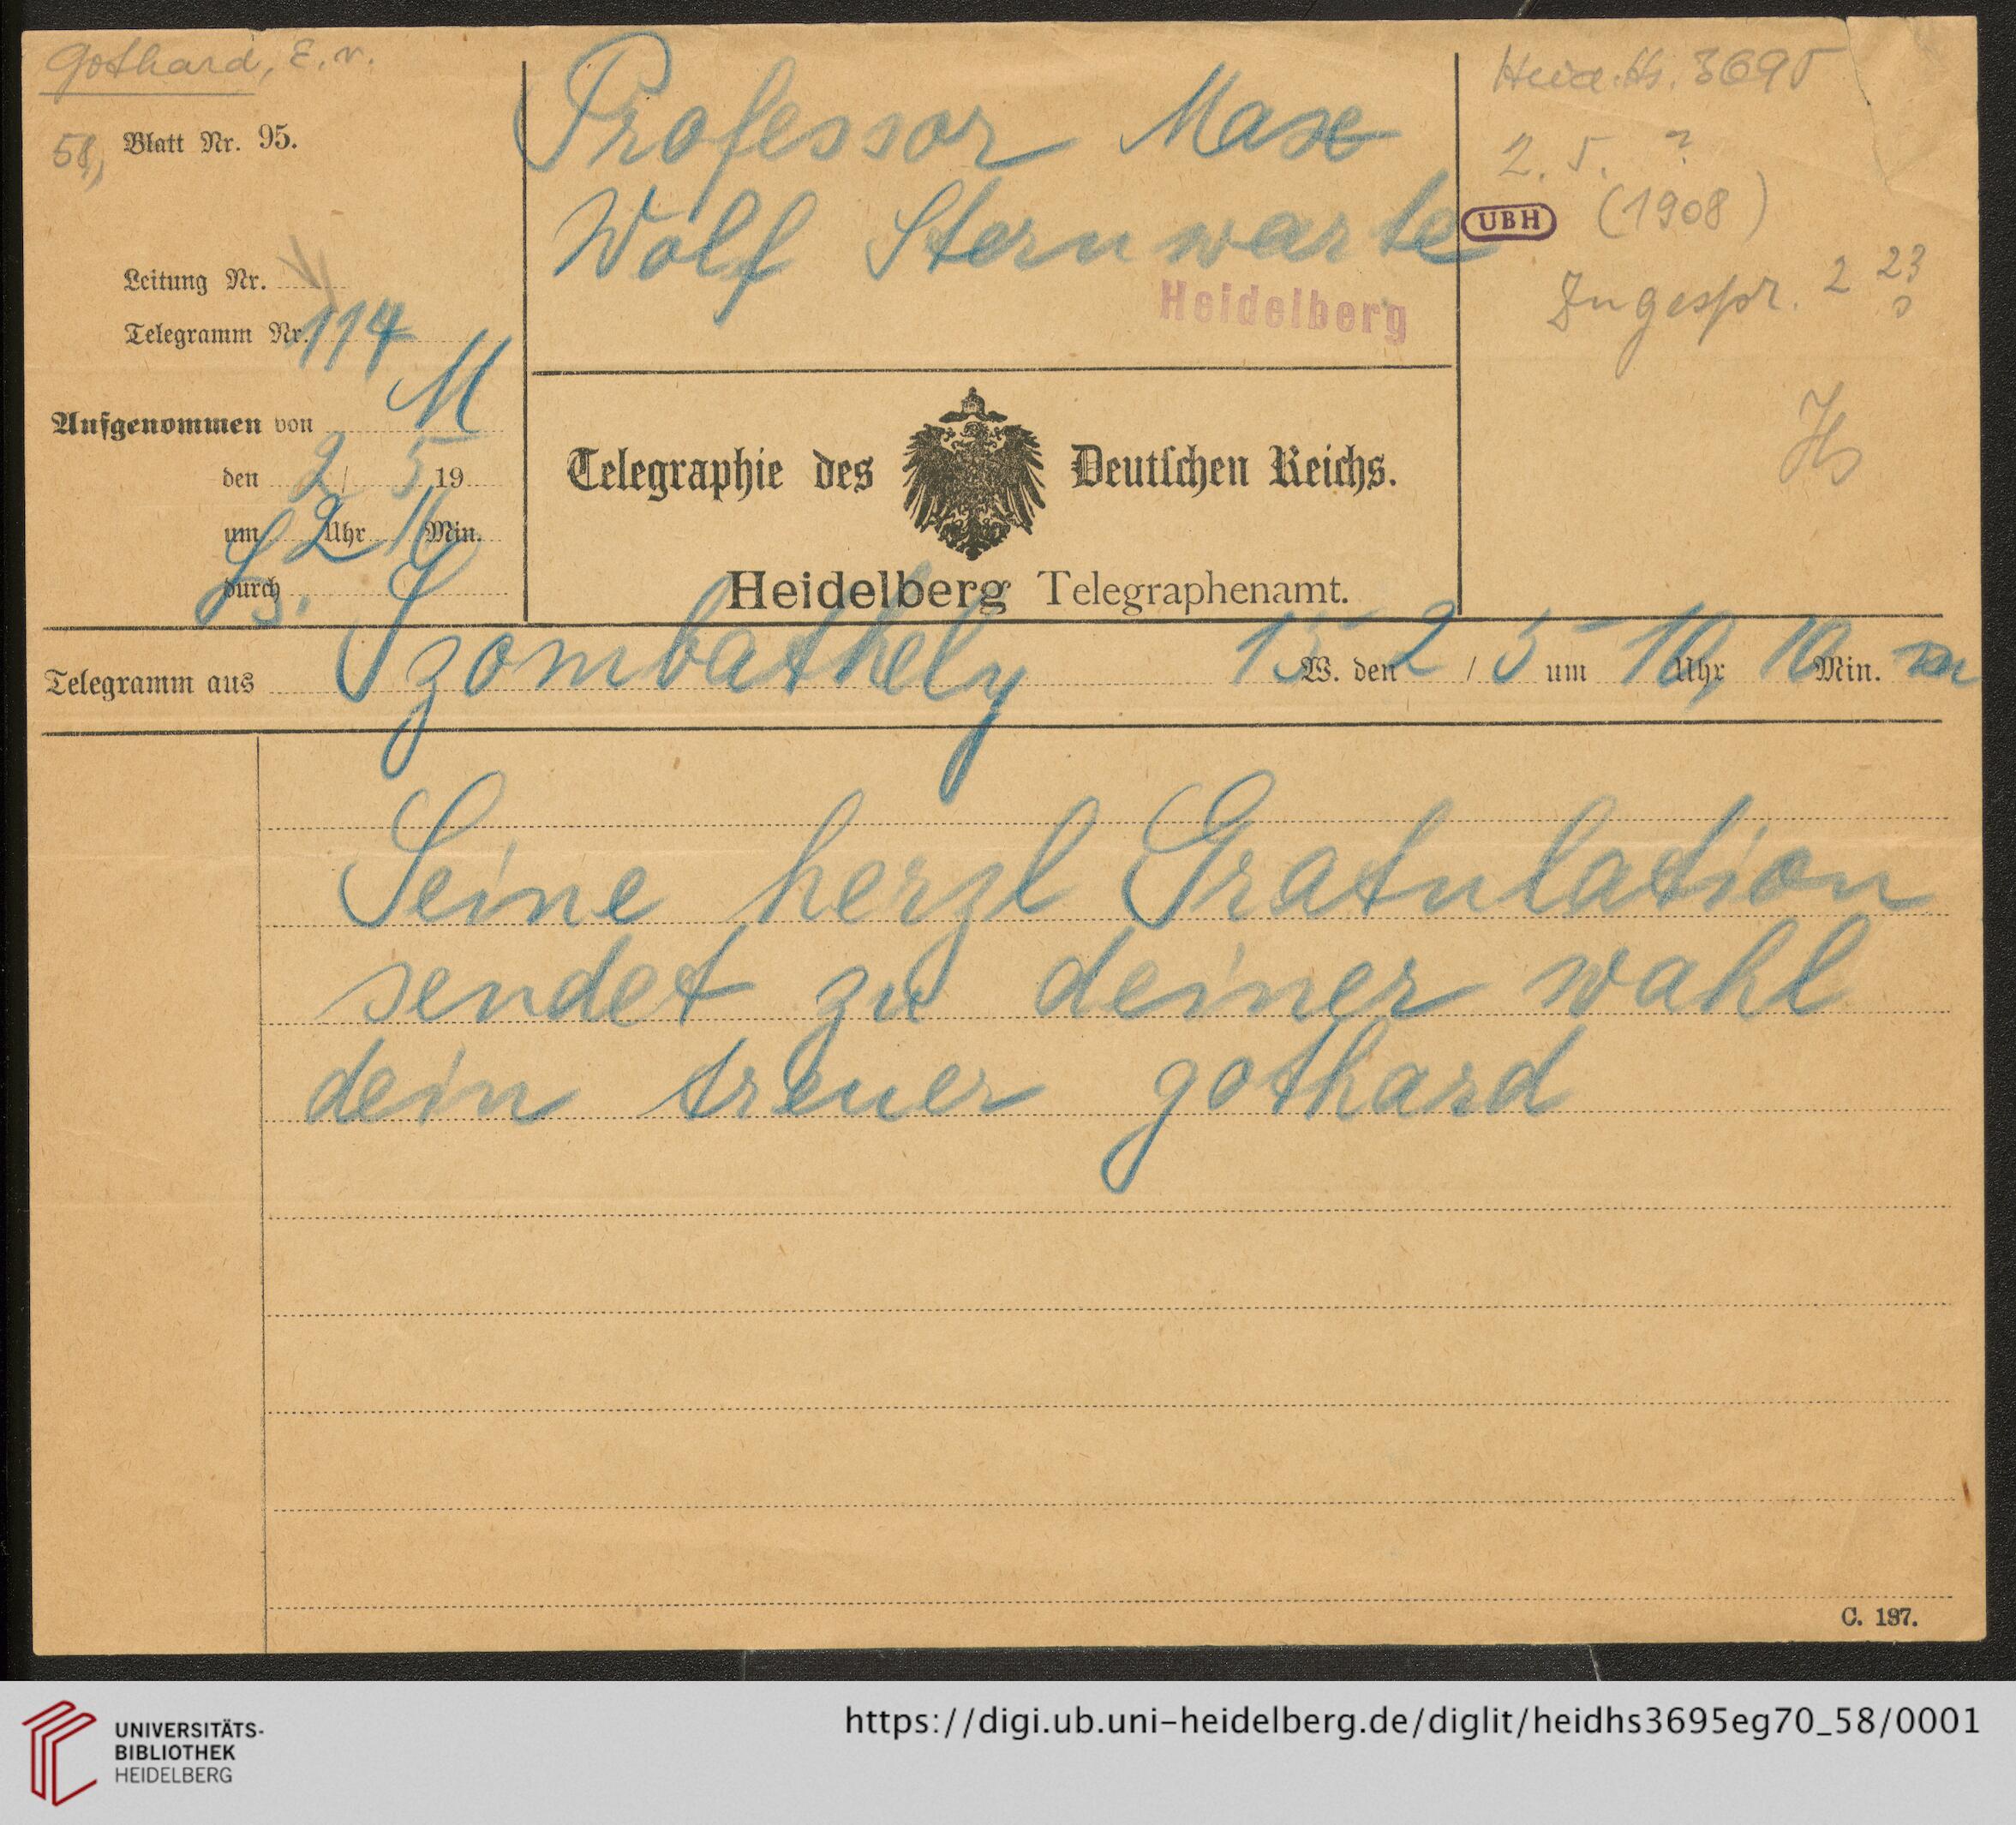 Gothard, E. v.
58,) Blatt Nr. 95.
Leitung Nr.
Telegramm Nr. 114
Aufgenommen von M
den 2 / 5 19
um 2 Uhr 16 Min.
durch
Professor Max
Wolf Sternwarte
Heidelberg
Telegraphie des Deutschen Reichs.
Heidelberg Telegraphenamt.
Heid. Hs. 3695
2. 5. ?
UBH (1908)
Zugespr. 2 23
Hs
Telegramm aus Szombathely 15 W. den 2 / 5 um 10 Uhr 10 Min.
Seine herzl Gratulation
sendet zu deiner wahl
dein treuer gothard
C. 187.
UNIVERSITÄTS-
BIBLIOTHEK
HEIDELBERG
https://digi.ub.uni-heidelberg.de/diglit/heidhs3695eg70_58/0001